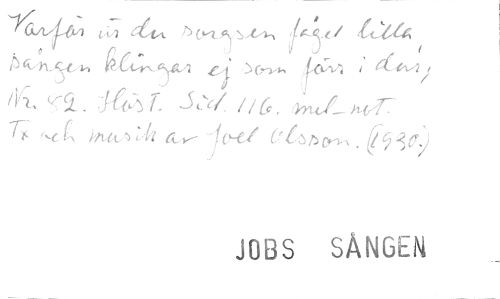 Varför är du sorgsen fågel lilla,
sången klingar ej som förr i dar,
Nr. 82. Höst. Sid. 116. mel-not.
Tx och musik av Joel Olsson. (1930.)
JOBS SÅNGEN